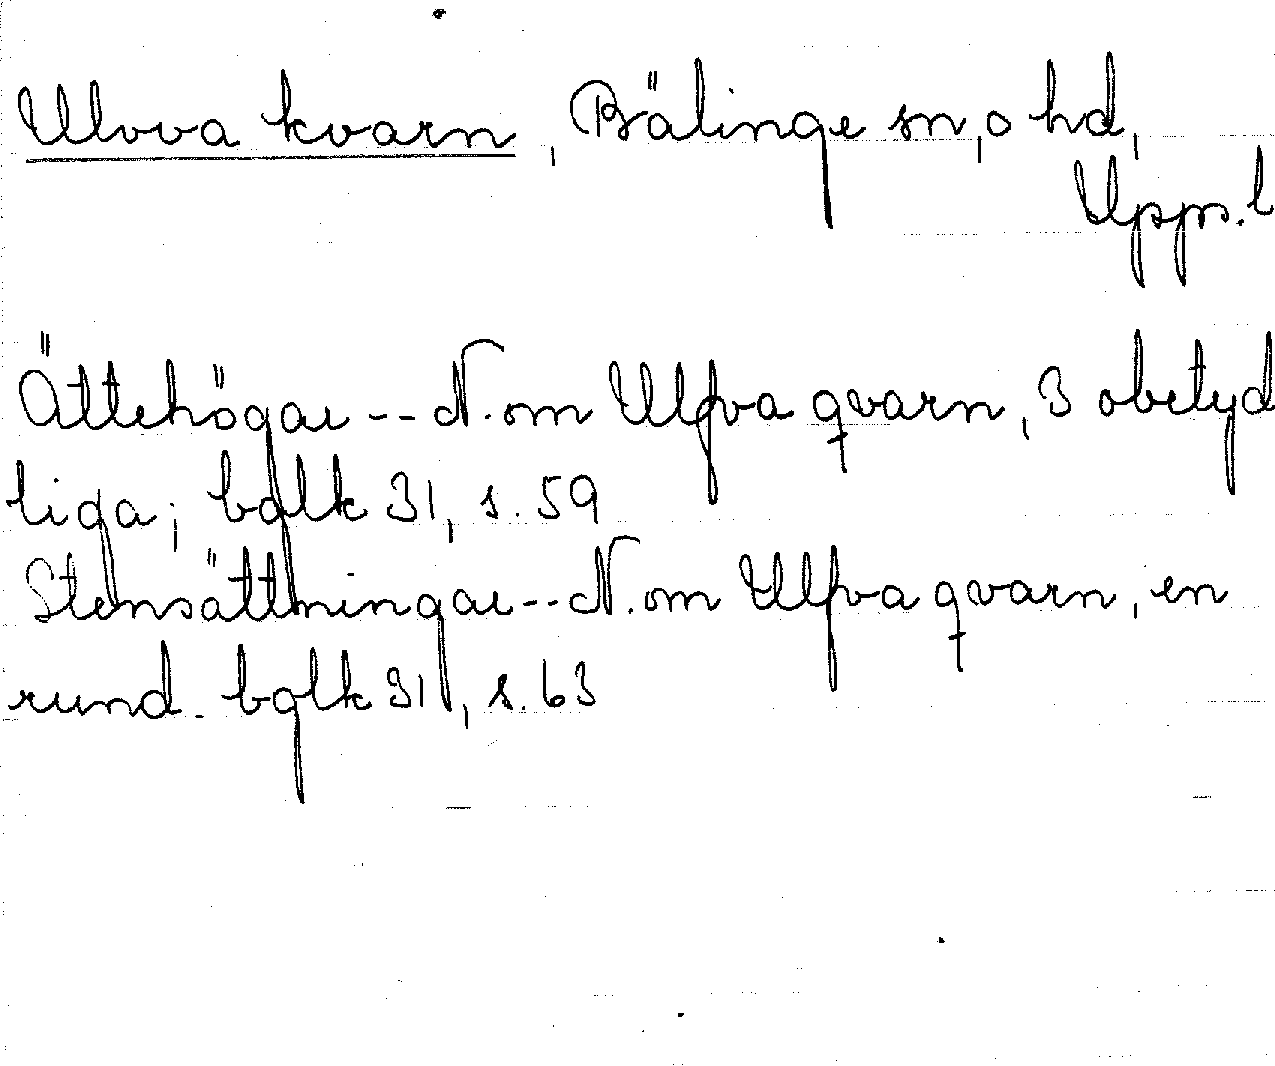 Ulvva kvarn, Bälinge sn, o hd,
Upps. l
Ättehögar -- N. om Ulfva qvarn, 3 obetyd
liga; bglk 31, s. 59
Stensättningar -- N. om Ulfva qvarn, en
rund. bglk 31, s. 63